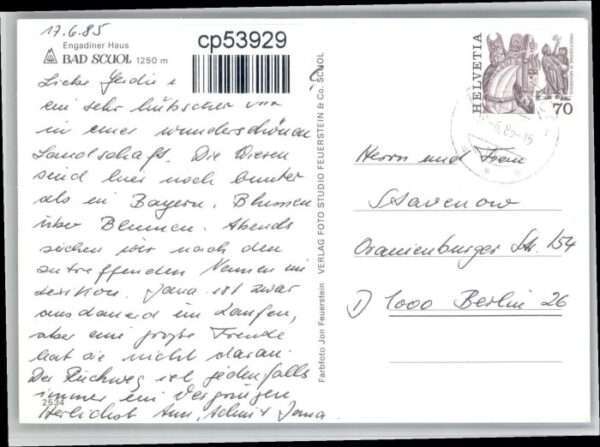 17.6.85
Engadiner Haus
BAD SCUOL 1250 m
cp53929
Liebe
ein sehr hübscher
in einer wunderschönen
Landschaft. Die Wiesen
sind hier noch bunter
als in Bayern. Blumen
über Blumen. Abends
suchen wir nach den
zutreffenden Namen im
Lexikon. Jana ist zwar
andauernd im Laufen,
aber eine große Freude
hat sie nicht daran.
Der Rückweg ist jedenfalls
immer ein Vergnügen
Herlichst Jana
2534
Farbfoto Jon Feuerstein
VERLAG FOTO STUDIO FEUERSTEIN & Co. SCUOL
HELVETIA
70
Herrn und Frau
Stavenow
Oranienburger Str. 154
D 1000 Berlin 26